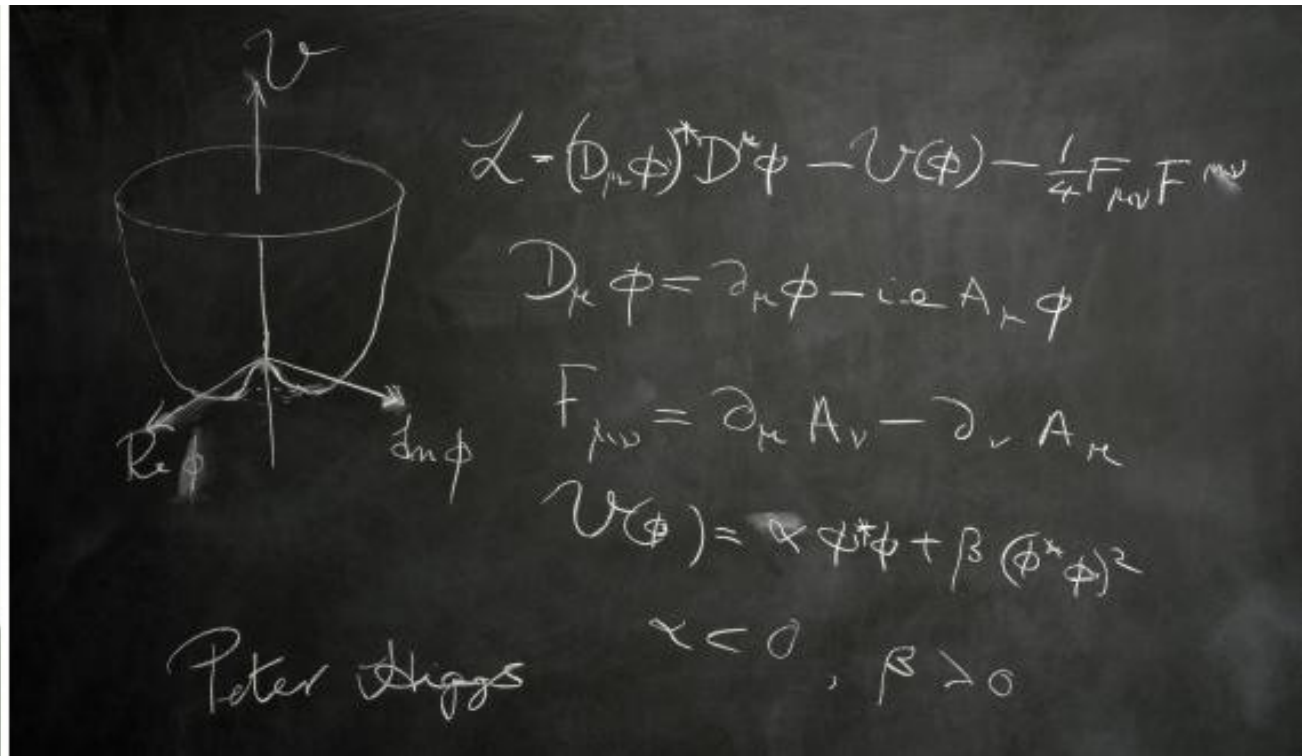 𝒱
ℒ = (D_μ ϕ)^* D^μ ϕ − 𝒱(ϕ) − 1/4 F_μν F^μν
D_μ ϕ = ∂_μ ϕ − i e A_μ ϕ
F_μν = ∂_μ A_ν − ∂_ν A_μ
Re ϕ
Im ϕ
𝒱(ϕ) = α ϕ^*ϕ + β (ϕ^*ϕ)^2
α < 0 , β > 0
Peter Higgs